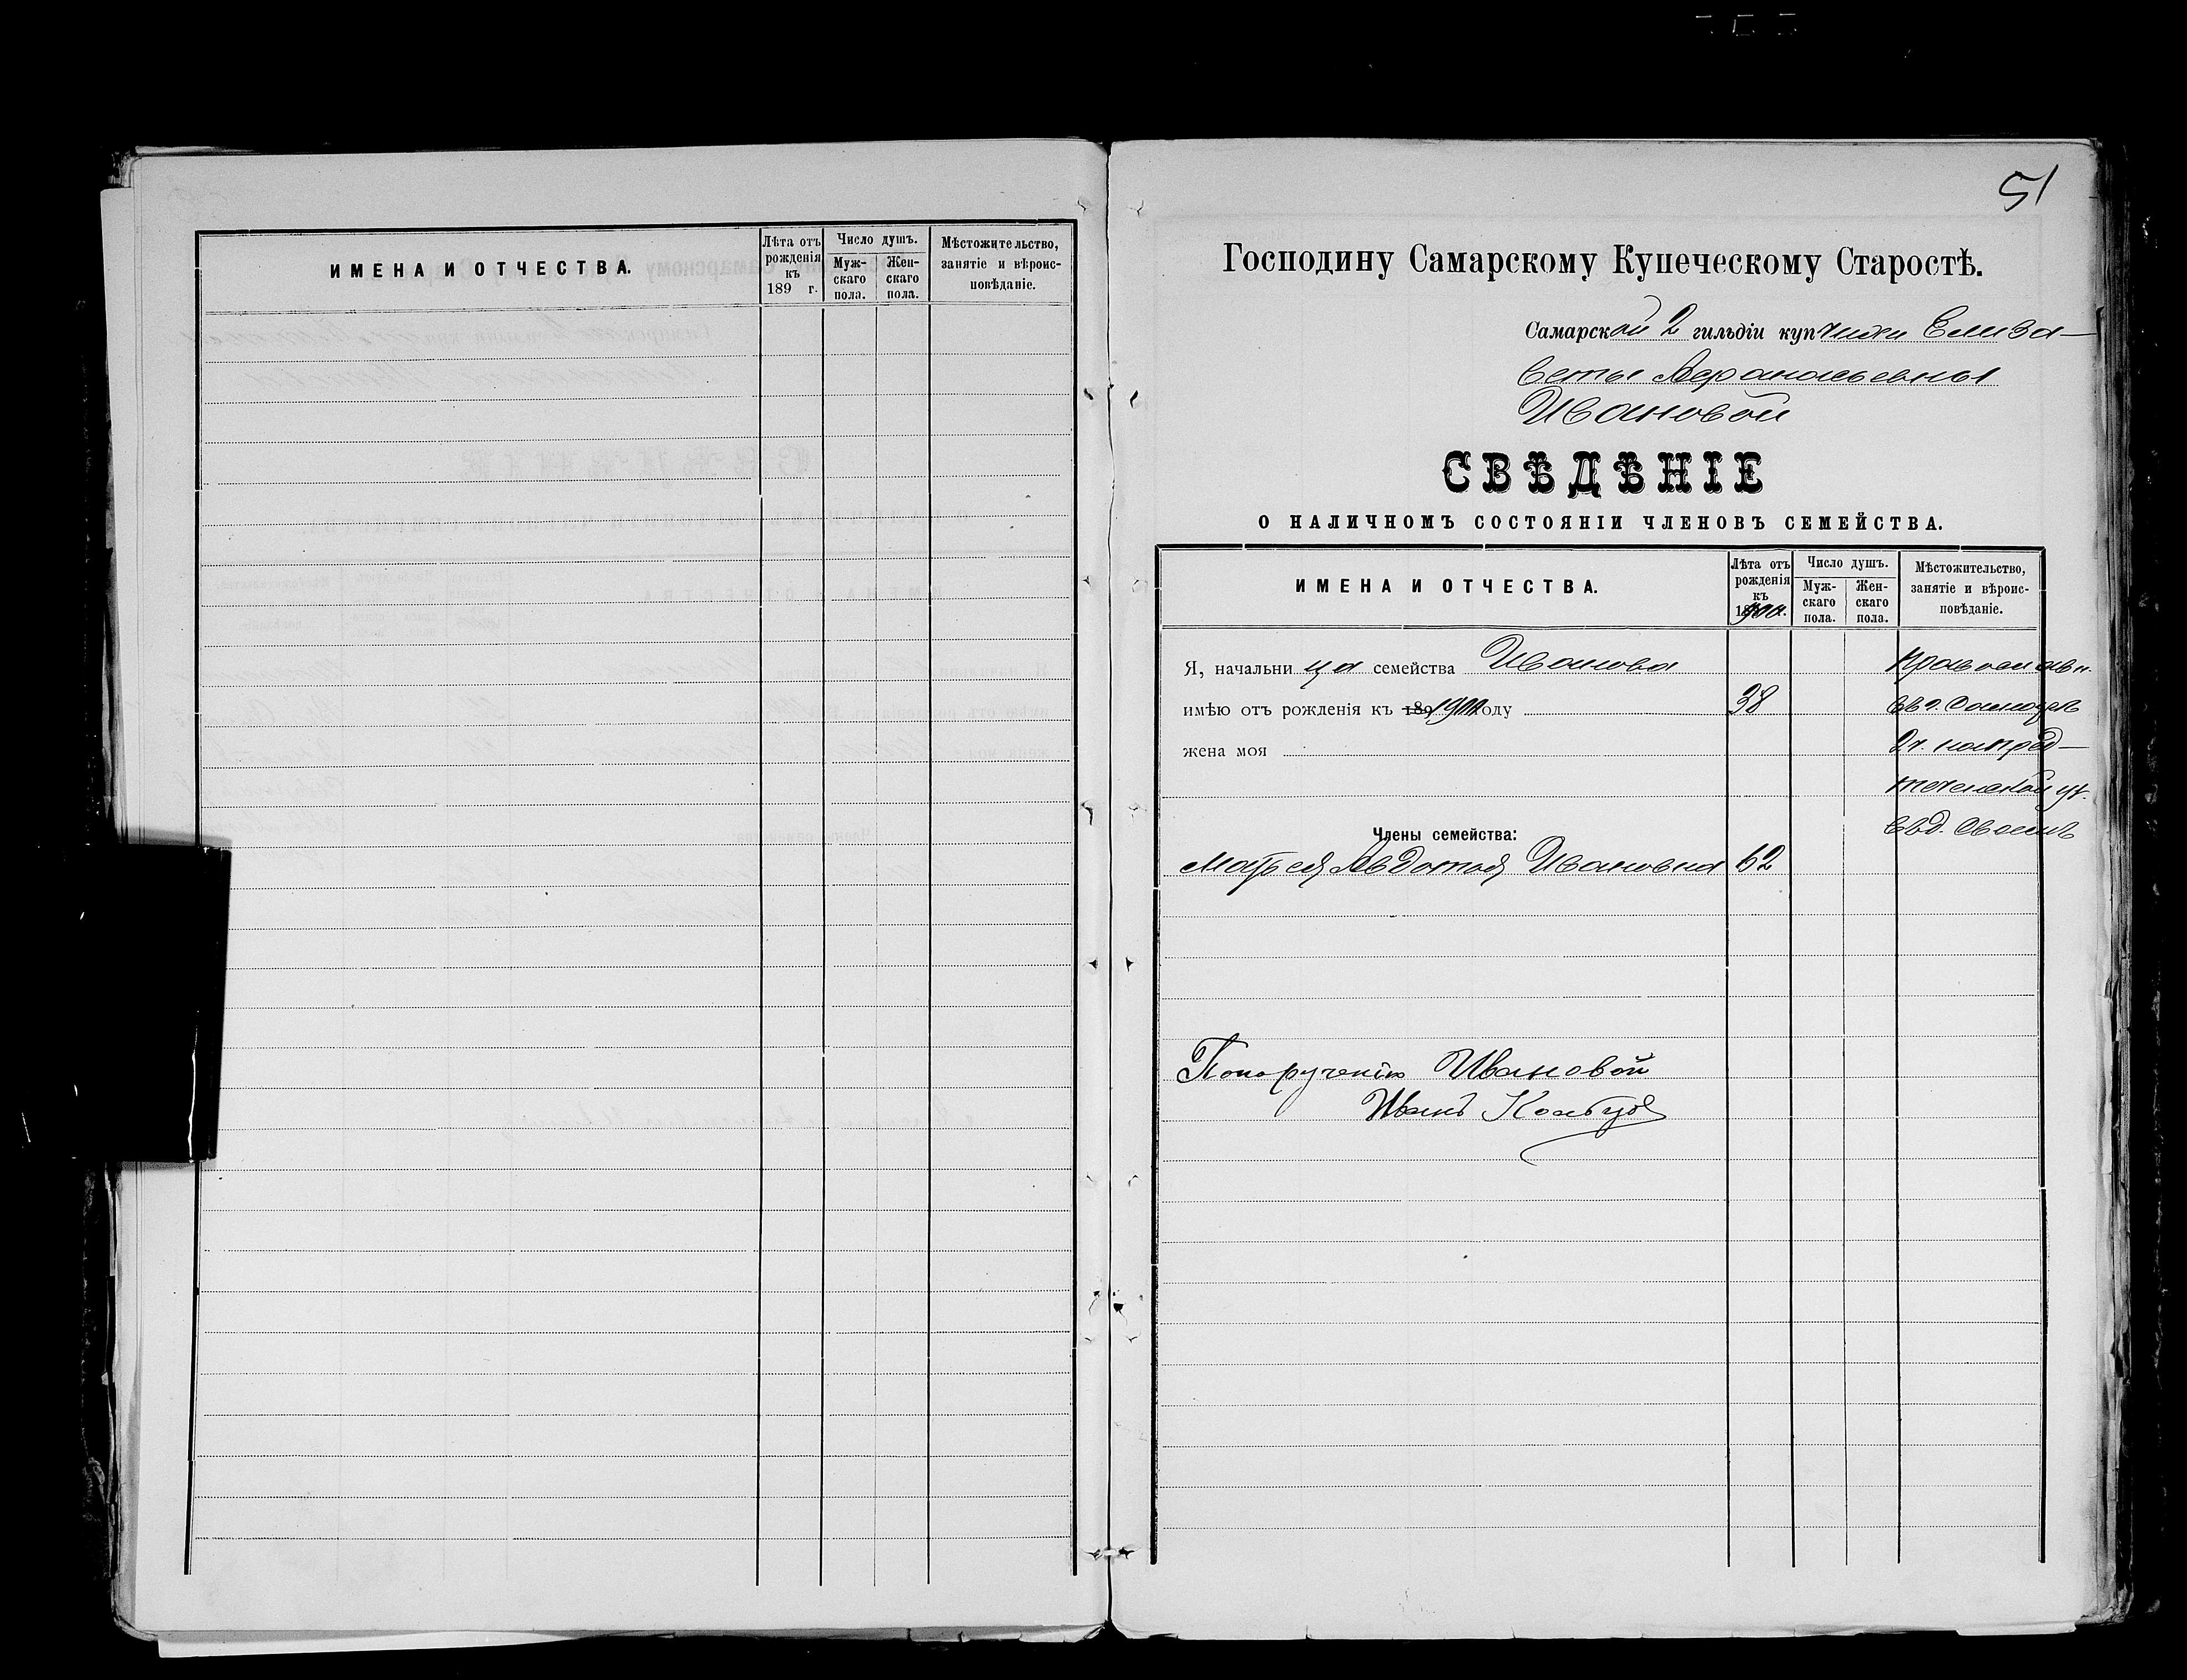 ИМЕНА И ОТЧЕСТВА.
Лѣта отъ рожденія къ 189 г.
Число душъ.
Мужскаго пола.
Женскаго пола.
Мѣстожительство, занятіе и вѣроисповѣданіе.
51
Господину Самарскому Купеческому Старостѣ.
Самарской 2 гильдіи купчихи Елиза-
веты Афанасьевны
Ивановой
СВѢДѢНІЕ
О НАЛИЧНОМЪ СОСТОЯНІИ ЧЛЕНОВЪ СЕМЕЙСТВА.
ИМЕНА И ОТЧЕСТВА.
Лѣта отъ
рожденія
къ
Число душъ.
Муж-
скаго
пола.
Жен-
скаго
пола.
Мѣстожительство,
занятіе и вѣроис-
повѣданіе.
Я, начальница семейства Иванова
Православн.
имѣю отъ рожденія къ 1900 году 38
въ г. Самарѣ
жена моя
2 ч. на пред-
теченской ул.
в д. своемъ
Члены семейства:
Мать ея Авдотья Ивановна 62
По порученію Ивановой
Иванъ Кольцов